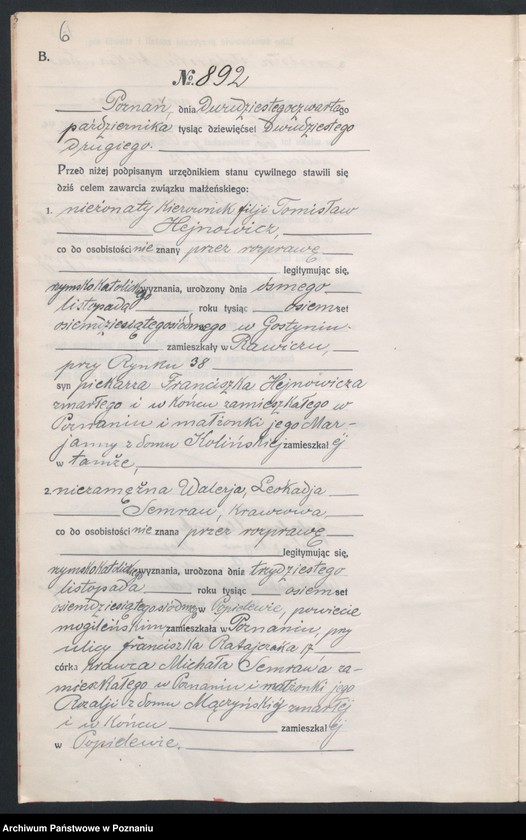 6
B.
№ 892
Poznań, dnia Dwudziestegoczwartego
października tysiąc dziewięćset Dwudziestego
Drugiego.
Przed niżej podpisanym urzędnikiem stanu cywilnego stawili się
dziś celem zawarcia związku małżeńskiego:
1. nieżonaty Kierownik filji Tomisław
Hejnowicz,
co do osobistości nie znany przez rozprawę
legitymując się,
rzymskokatolickiego wyznania, urodzony dnia ósmego
listopada roku tysiąc osiemset
osiemdziesiątegosiódmego w Gostyniu.
zamieszkały w Rawiczu,
przy Rynku 38
syn piekarza Franciszka Hejnowicza
zmarłego i w końcu zamieszkałego w
Poznaniu i małżonki jego Mar-
janny z domu Kolińskiej zamieszkałej
w tamże,
2. niezamężna Walerja, Leokadja
Semrau, krawcowa,
co do osobistości nie znana przez rozprawę
legitymując się,
rzymskokatolickiego wyznania, urodzona dnia trzydziestego
listopada roku tysiąc osiemset
osiemdziesiątegosiódmego w Popielewie, powiecie
mogileńskim, zamieszkała w Poznaniu, przy
ulicy Franciszka Ratajczaka 17
córka krawca Michała Semrau'a za-
mieszkałego w Poznaniu i małżonki jego
Rozalji z domu Mączyńskiej zmarłej
i w końcu zamieszkałej
w Popielewie.
Archiwum Państwowe w Poznaniu